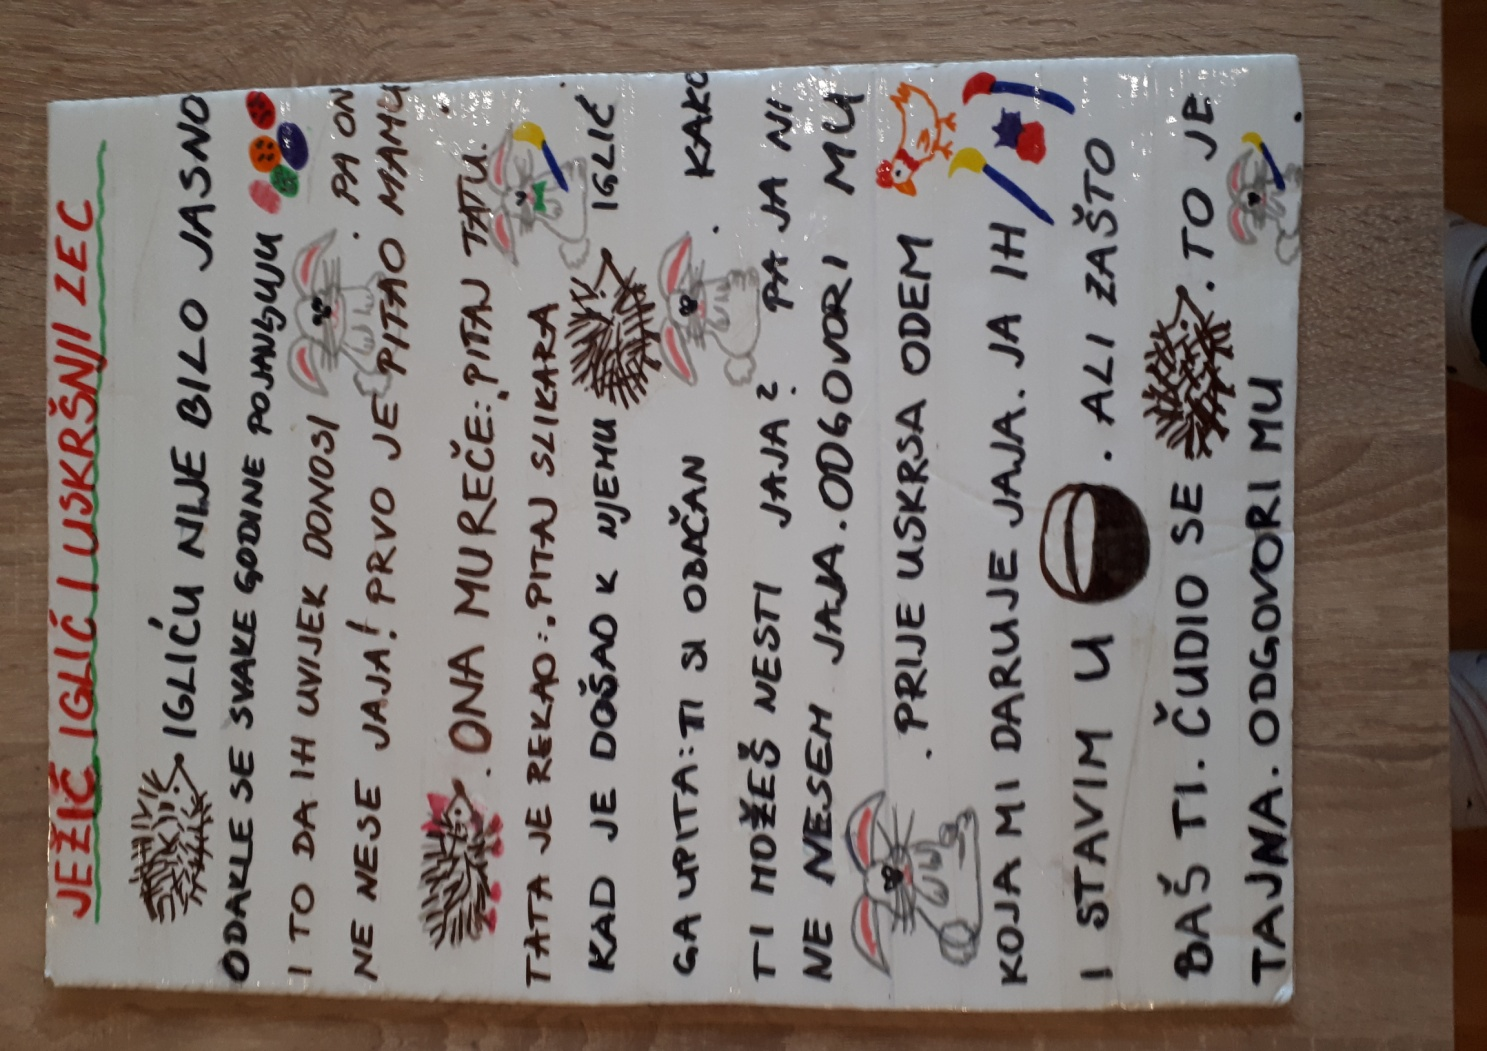 JEŽIĆ IGLIĆ I USKRŠNJI ZEC
IGLIĆU NIJE BILO JASNO
ODAKLE SE SVAKE GODINE POJAVLJUJU
I TO DA IH UVIJEK DONOSI . PA ON
NE NESE JAJA! PRVO JE PITAO MAMU
. ONA MU REČE: PITAJ TATU.
TATA JE REKAO: PITAJ SLIKARA .
KAD JE DOŠAO K NJEMU IGLIĆ
GA UPITA: TI SI OBIČAN . KAKO
TI MOŽEŠ NESTI JAJA? PA JA NI
NE NESEM JAJA. ODGOVORI MU
. PRIJE USKRSA ODEM
KOJA MI DARUJE JAJA. JA IH
I STAVIM U . ALI ZAŠTO
BAŠ TI. ČUDIO SE . TO JE
TAJNA. ODGOVORI MU .